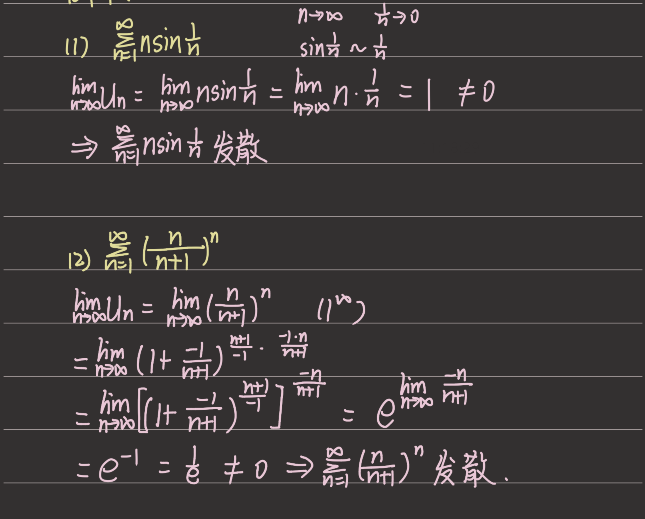 n→∞ 1/n→0
(1) ∑_{n=1}^{∞} n sin 1/n sin 1/n ~ 1/n
lim_{n→∞} Un = lim_{n→∞} n sin 1/n = lim_{n→∞} n · 1/n = 1 ≠ 0
⇒ ∑_{n=1}^{∞} n sin 1/n 发散
(2) ∑_{n=1}^{∞} (n/(n+1))^n
lim_{n→∞} Un = lim_{n→∞} (n/(n+1))^n (1^∞)
= lim_{n→∞} (1 + -1/(n+1))^{(n+1)/-1 · (-1·n)/(n+1)}
= lim_{n→∞} [(1 + -1/(n+1))^{(n+1)/-1}]^{-n/(n+1)} = e^{lim_{n→∞} -n/(n+1)}
= e^{-1} = 1/e ≠ 0 ⇒ ∑_{n=1}^{∞} (n/(n+1))^n 发散.